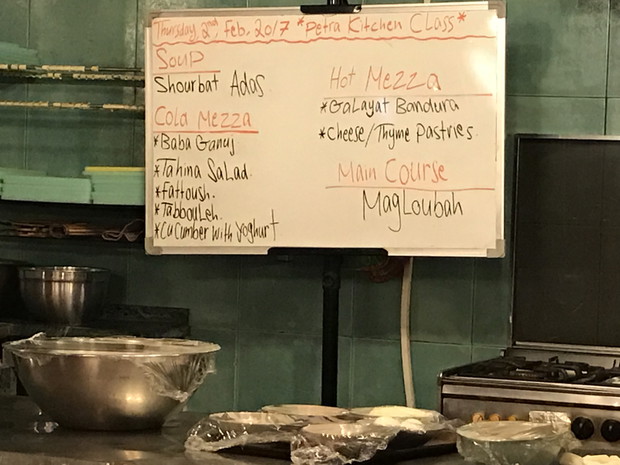 Thursday, 2nd, Feb. 2017 *Petra Kitchen Class*
Soup
Shourbat Adas
Cold Mezza
*Baba Ganuj
*Tahina Salad.
*Fattoush.
*Tabbouleh.
*Cucumber with yoghurt
Hot Mezza
*Galayat Bandura
*Cheese/Thyme Pastries.
Main Course
Magloubah